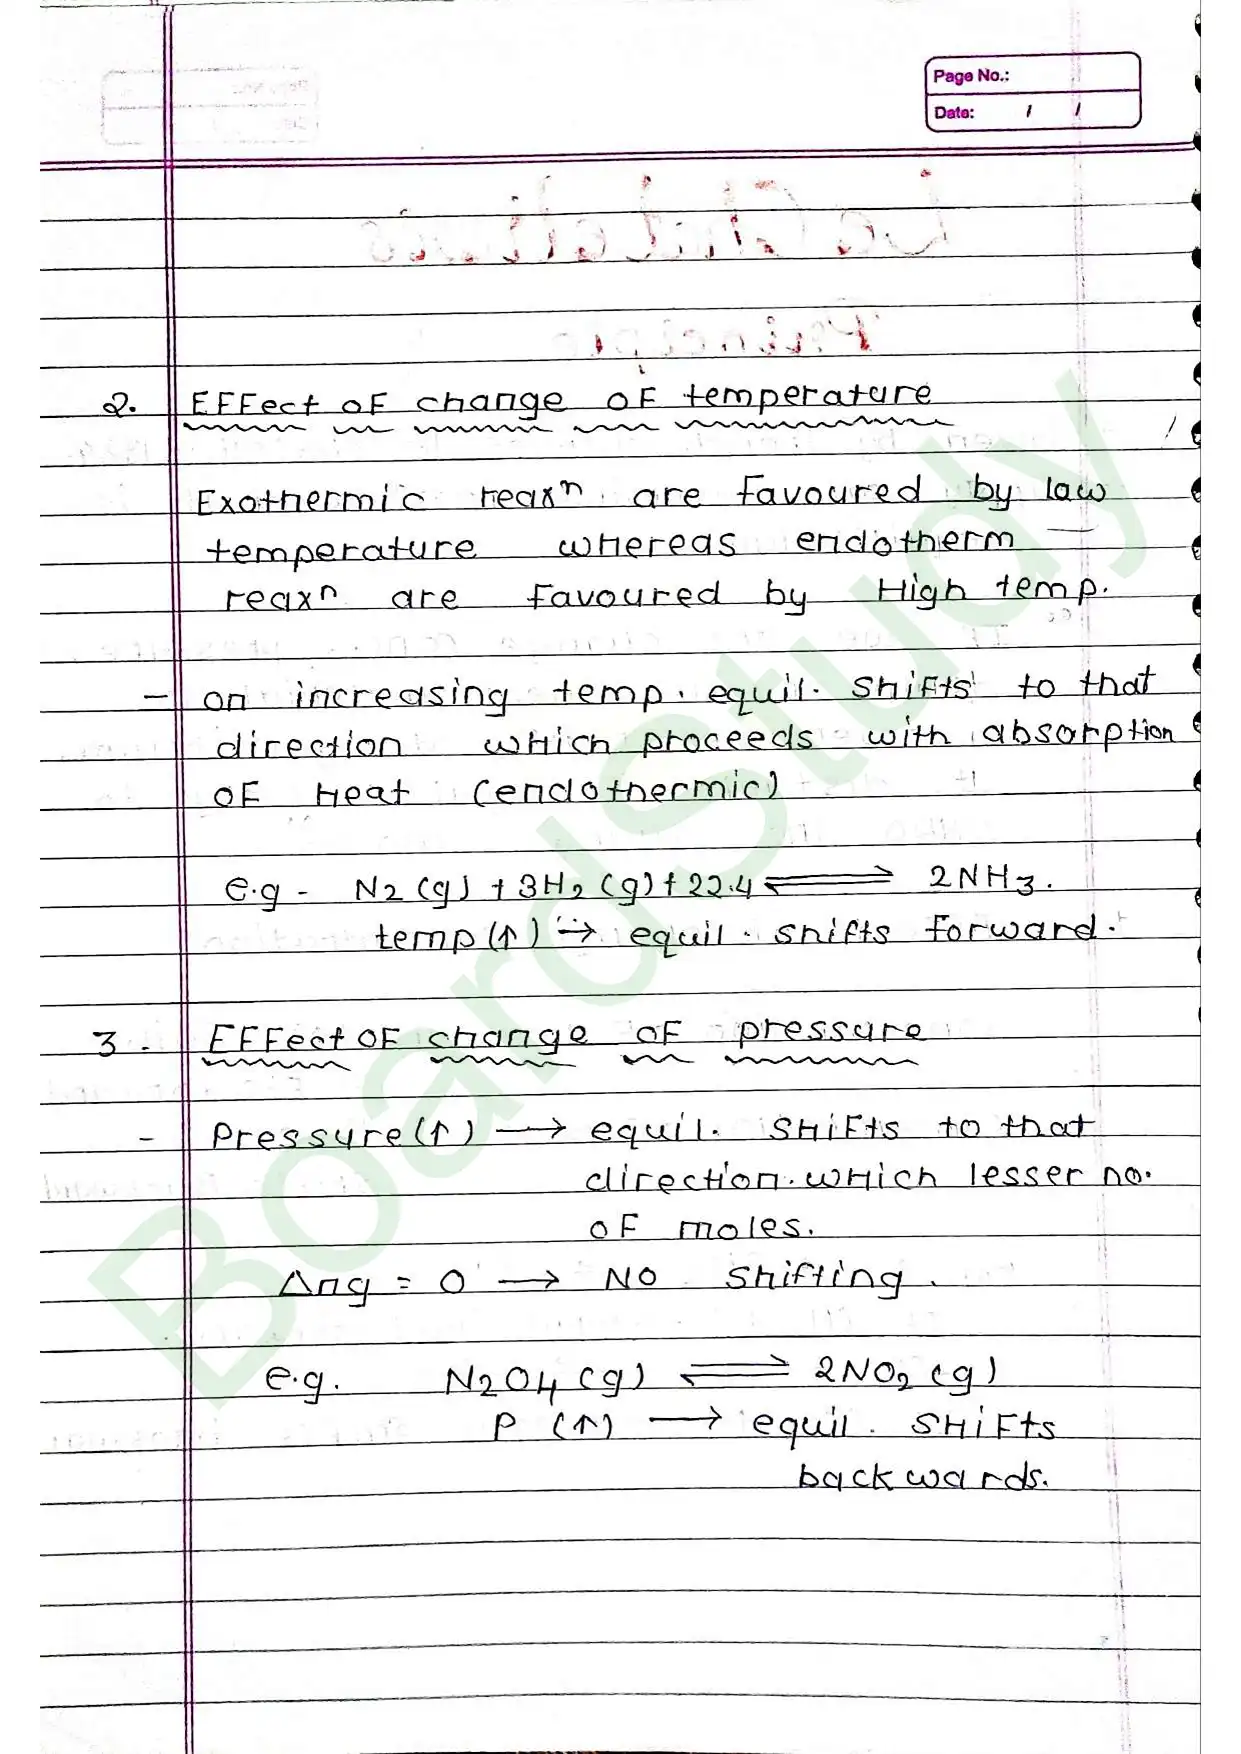 Page No.:
Date: / /
2. EFFect OF change OF temperature
Exothermic reaxⁿ are Favoured by law
temperature wHereas endotherm —
reaxⁿ are Favoured by High temp.
- on increasing temp. equil. SHiFts to that
direction wHich proceeds with absorption
OF Heat (endothermic)
e.g - N2 (g) + 3H2 (g) + 22.4 ⇌ 2NH3.
temp (↑) → equil. shifts forward.
3. EFFect OF change OF pressure
- Pressure (↑) → equil. SHiFts to that
direction. wHich lesser no.
OF moles.
Δng = 0 → NO shifting.
e.g. N2O4 (g) ⇌ 2NO2 (g)
P (↑) → equil. SHiFts
backwards.
BoardStudy